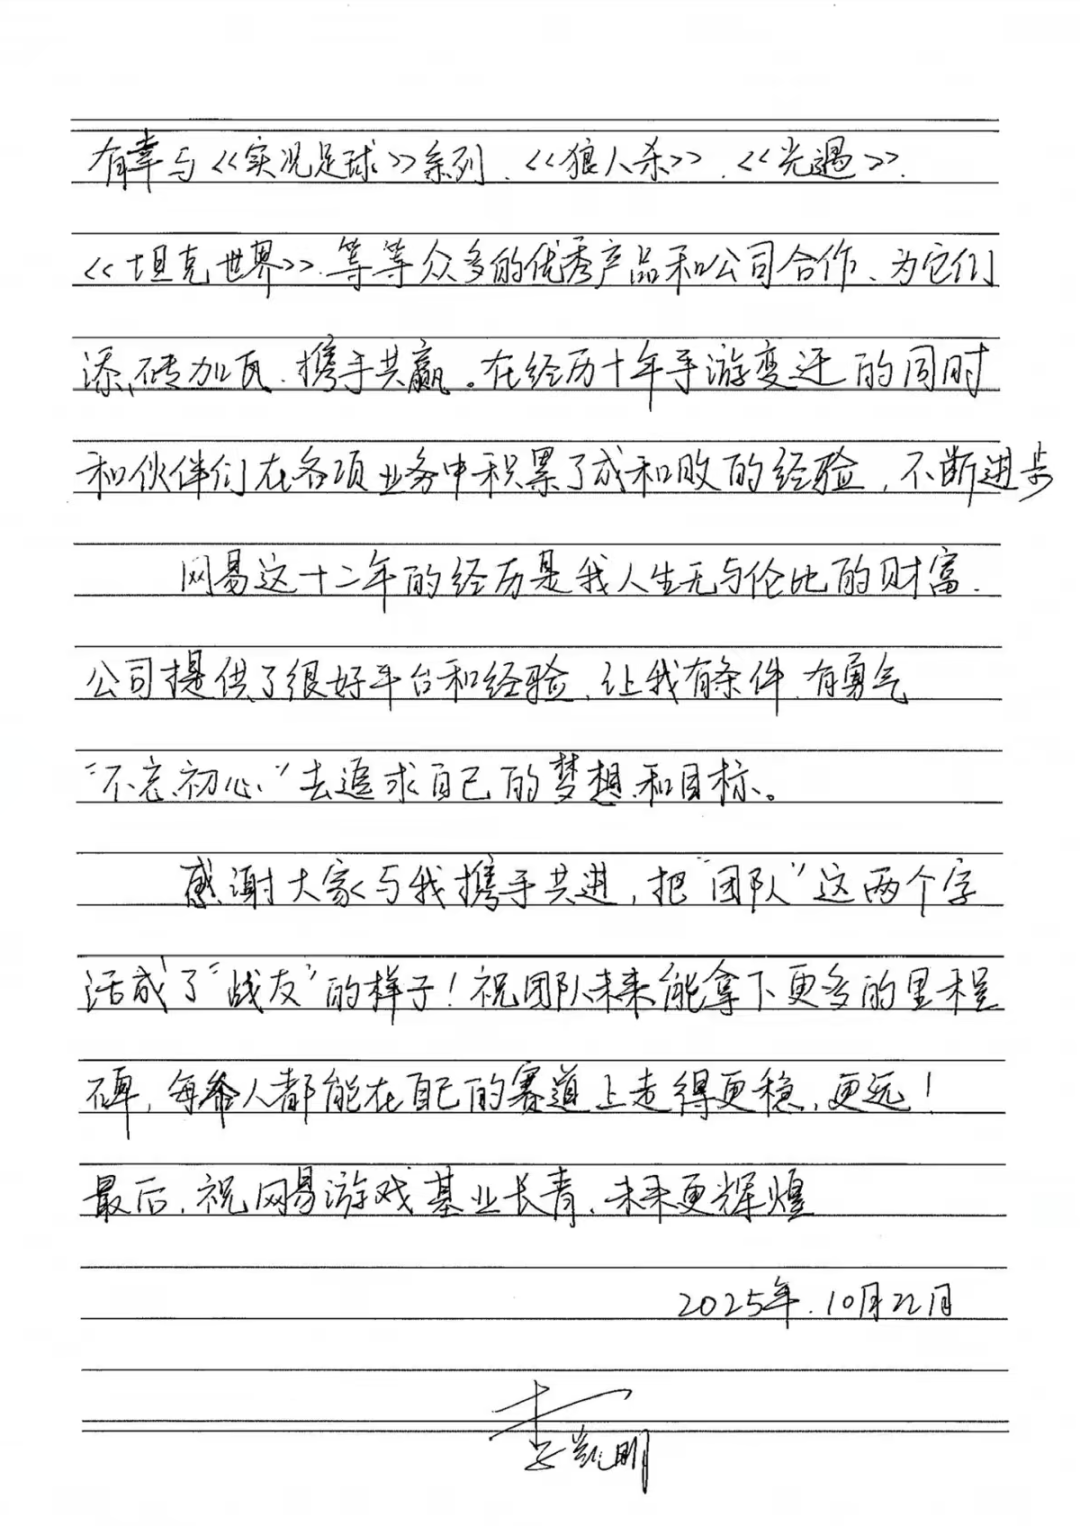 有幸与《实况足球》系列、《狼人杀》、《光遇》、
《坦克世界》等等众多的优秀产品和公司合作、为它们
添砖加瓦、携手共赢。在经历十年手游变迁的同时
和伙伴们在各项业务中积累了成和败的经验，不断进步
网易这十二年的经历是我人生无与伦比的财富.
公司提供了很好平台和经验、让我有条件、有勇气
"不忘初心"去追求自己的梦想和目标。
感谢大家与我携手共进，把"团队"这两个字
活成了"战友"的样子！祝团队未来能拿下更多的里程
碑，每个人都能在自己的赛道上走得更稳、更远！
最后、祝网易游戏基业长青、未来更辉煌
2025年.10月22月
李凯明